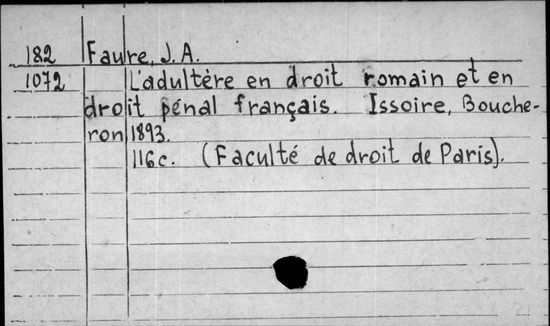 182 Faure, J.A.
1072 L'adultère en droit romain et en
droit pénal français. Issoire, Bouche-
ron 1893.
116c. (Faculté de droit de Paris).